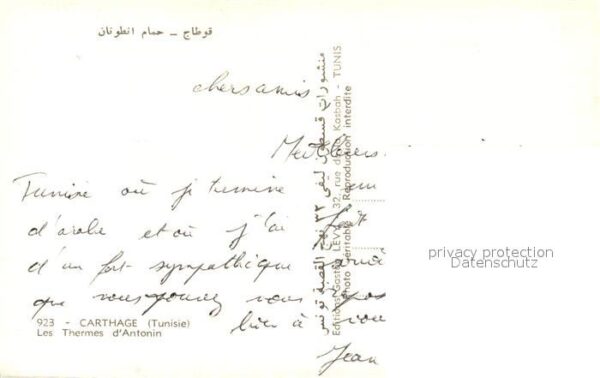 قرطاج – حمام انطونان
chers amis
Meilleurs
Tunisie où je termine
d'arabe et où j'ai fait
d'un fort sympathique
que vous pouvez vous pas
bien à vous
Jean
923 - CARTHAGE (Tunisie)
Les Thermes d'Antonin
منشورات قسطون ليفي ٣٢ نهج القصبة تونس
Editions Gaston LEVY, 32, rue de la Kasbah - TUNIS
Photo véritable - Reproduction interdite
privacy protection
Datenschutz